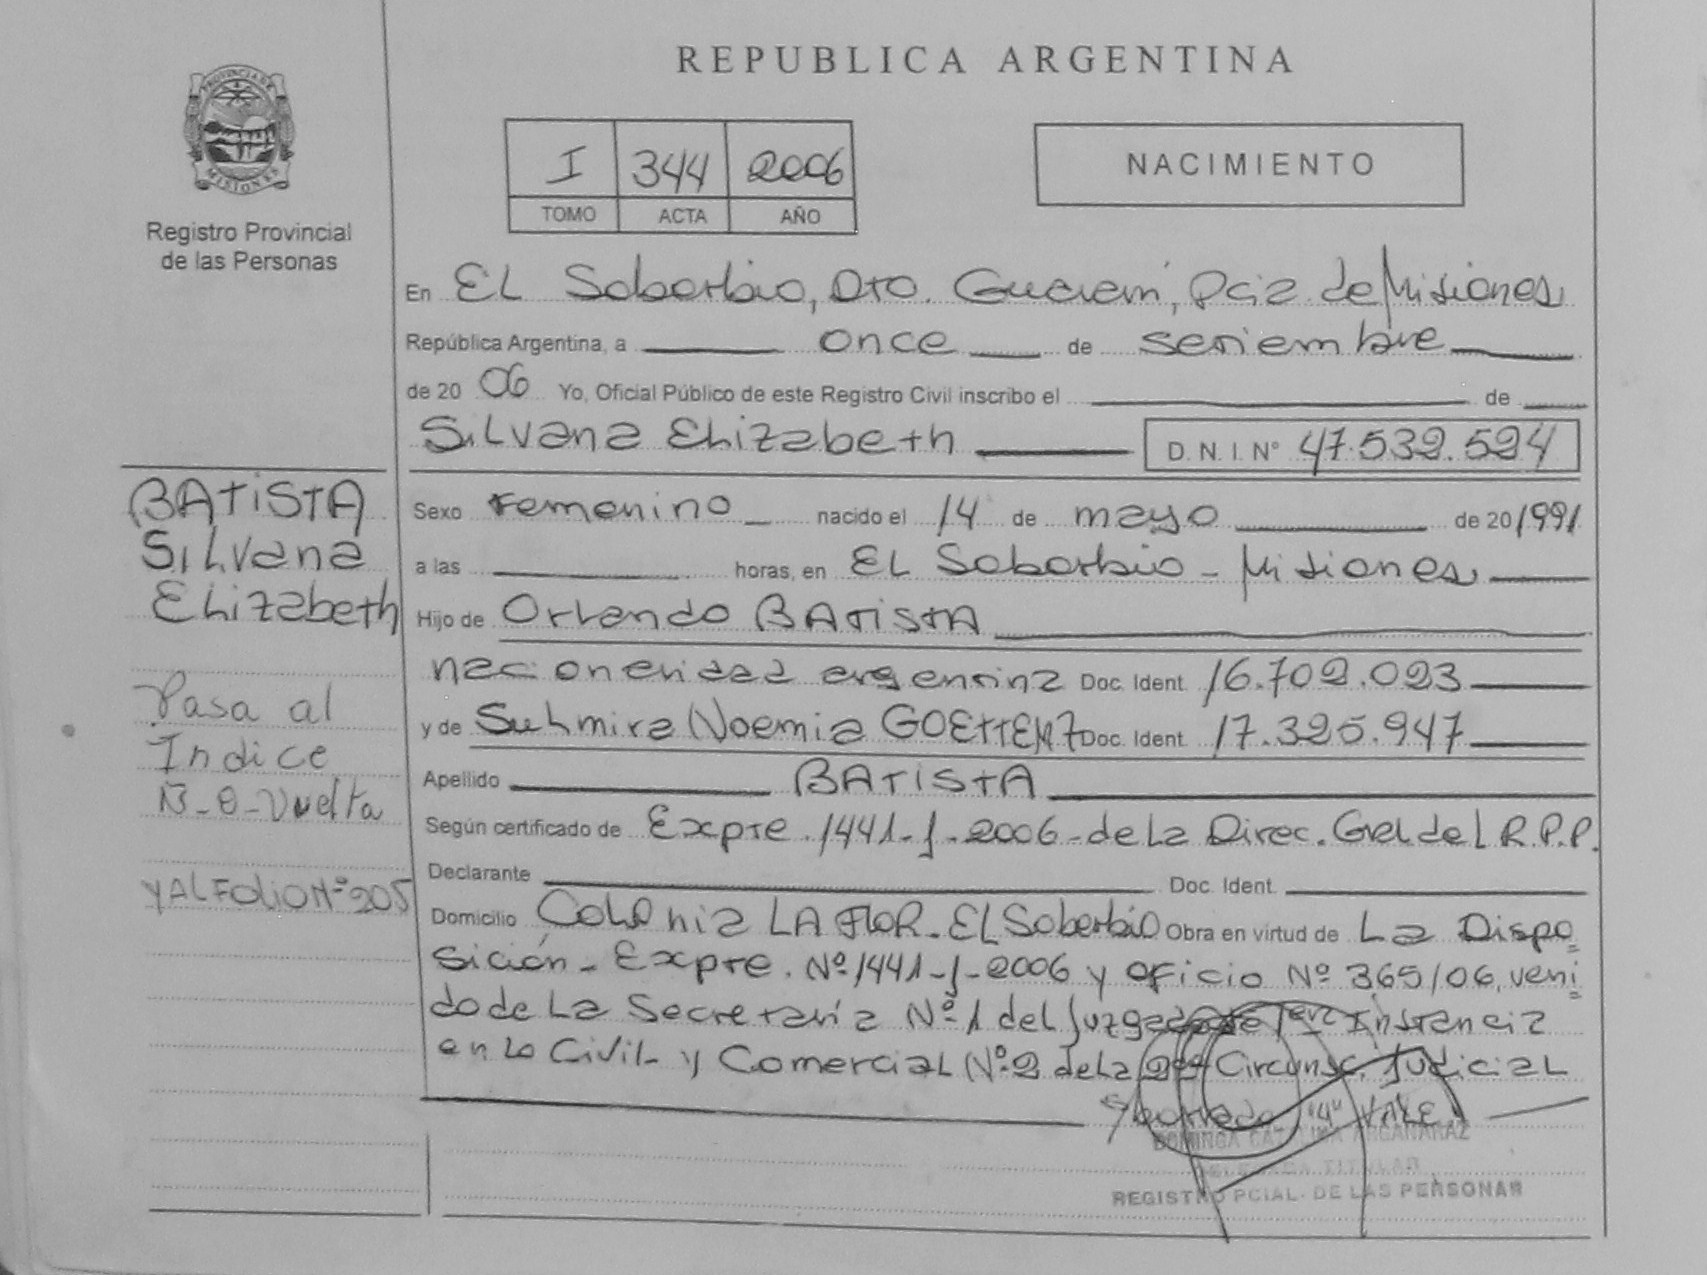 REPUBLICA ARGENTINA
PROVINCIA DE
MISIONES
Registro Provincial
de las Personas
I 344 2006
TOMO ACTA AÑO
NACIMIENTO
En EL Soberbio, Dto. Guaraní, Pcia. de Misiones
República Argentina, a once de setiembre
de 20 06 Yo, Oficial Público de este Registro Civil inscribo el de
Silvana Elizabeth D.N.I. Nº 47.532.524
BATISTA
Silvana
Elizabeth
Pasa al
Indice
B-0-Vuelta
Y AL Folio Nº 205
Sexo Femenino nacido el 14 de mayo de 20 1991
a las horas, en EL Soberbio - Misiones
Hijo de Orlando BATISTA
nacionalidad argentina Doc. Ident. 16.702.023
y de Noemia Doc. Ident. 17.325.947
Apellido BATISTA
Según certificado de Expte. 1441-J-2006-de La Direc. Gral del R.P.P.
Declarante Doc. Ident.
Domicilio Colonia LA FLOR. EL Soberbio Obra en virtud de La Dispo
sición - Expte. Nº 1441-J-2006 y oficio Nº 365/06, veni
do de La Secretaría Nº 1 del Juzgado de 1era Instancia
en lo Civil y Comercial Nº 2 de La 2da Circunsc. Judicial
borrado "4" VALE.
DOMINGA CATALINA ARGAÑARAZ
DELEGADA TITULAR
REGISTRO PCIAL. DE LAS PERSONAS